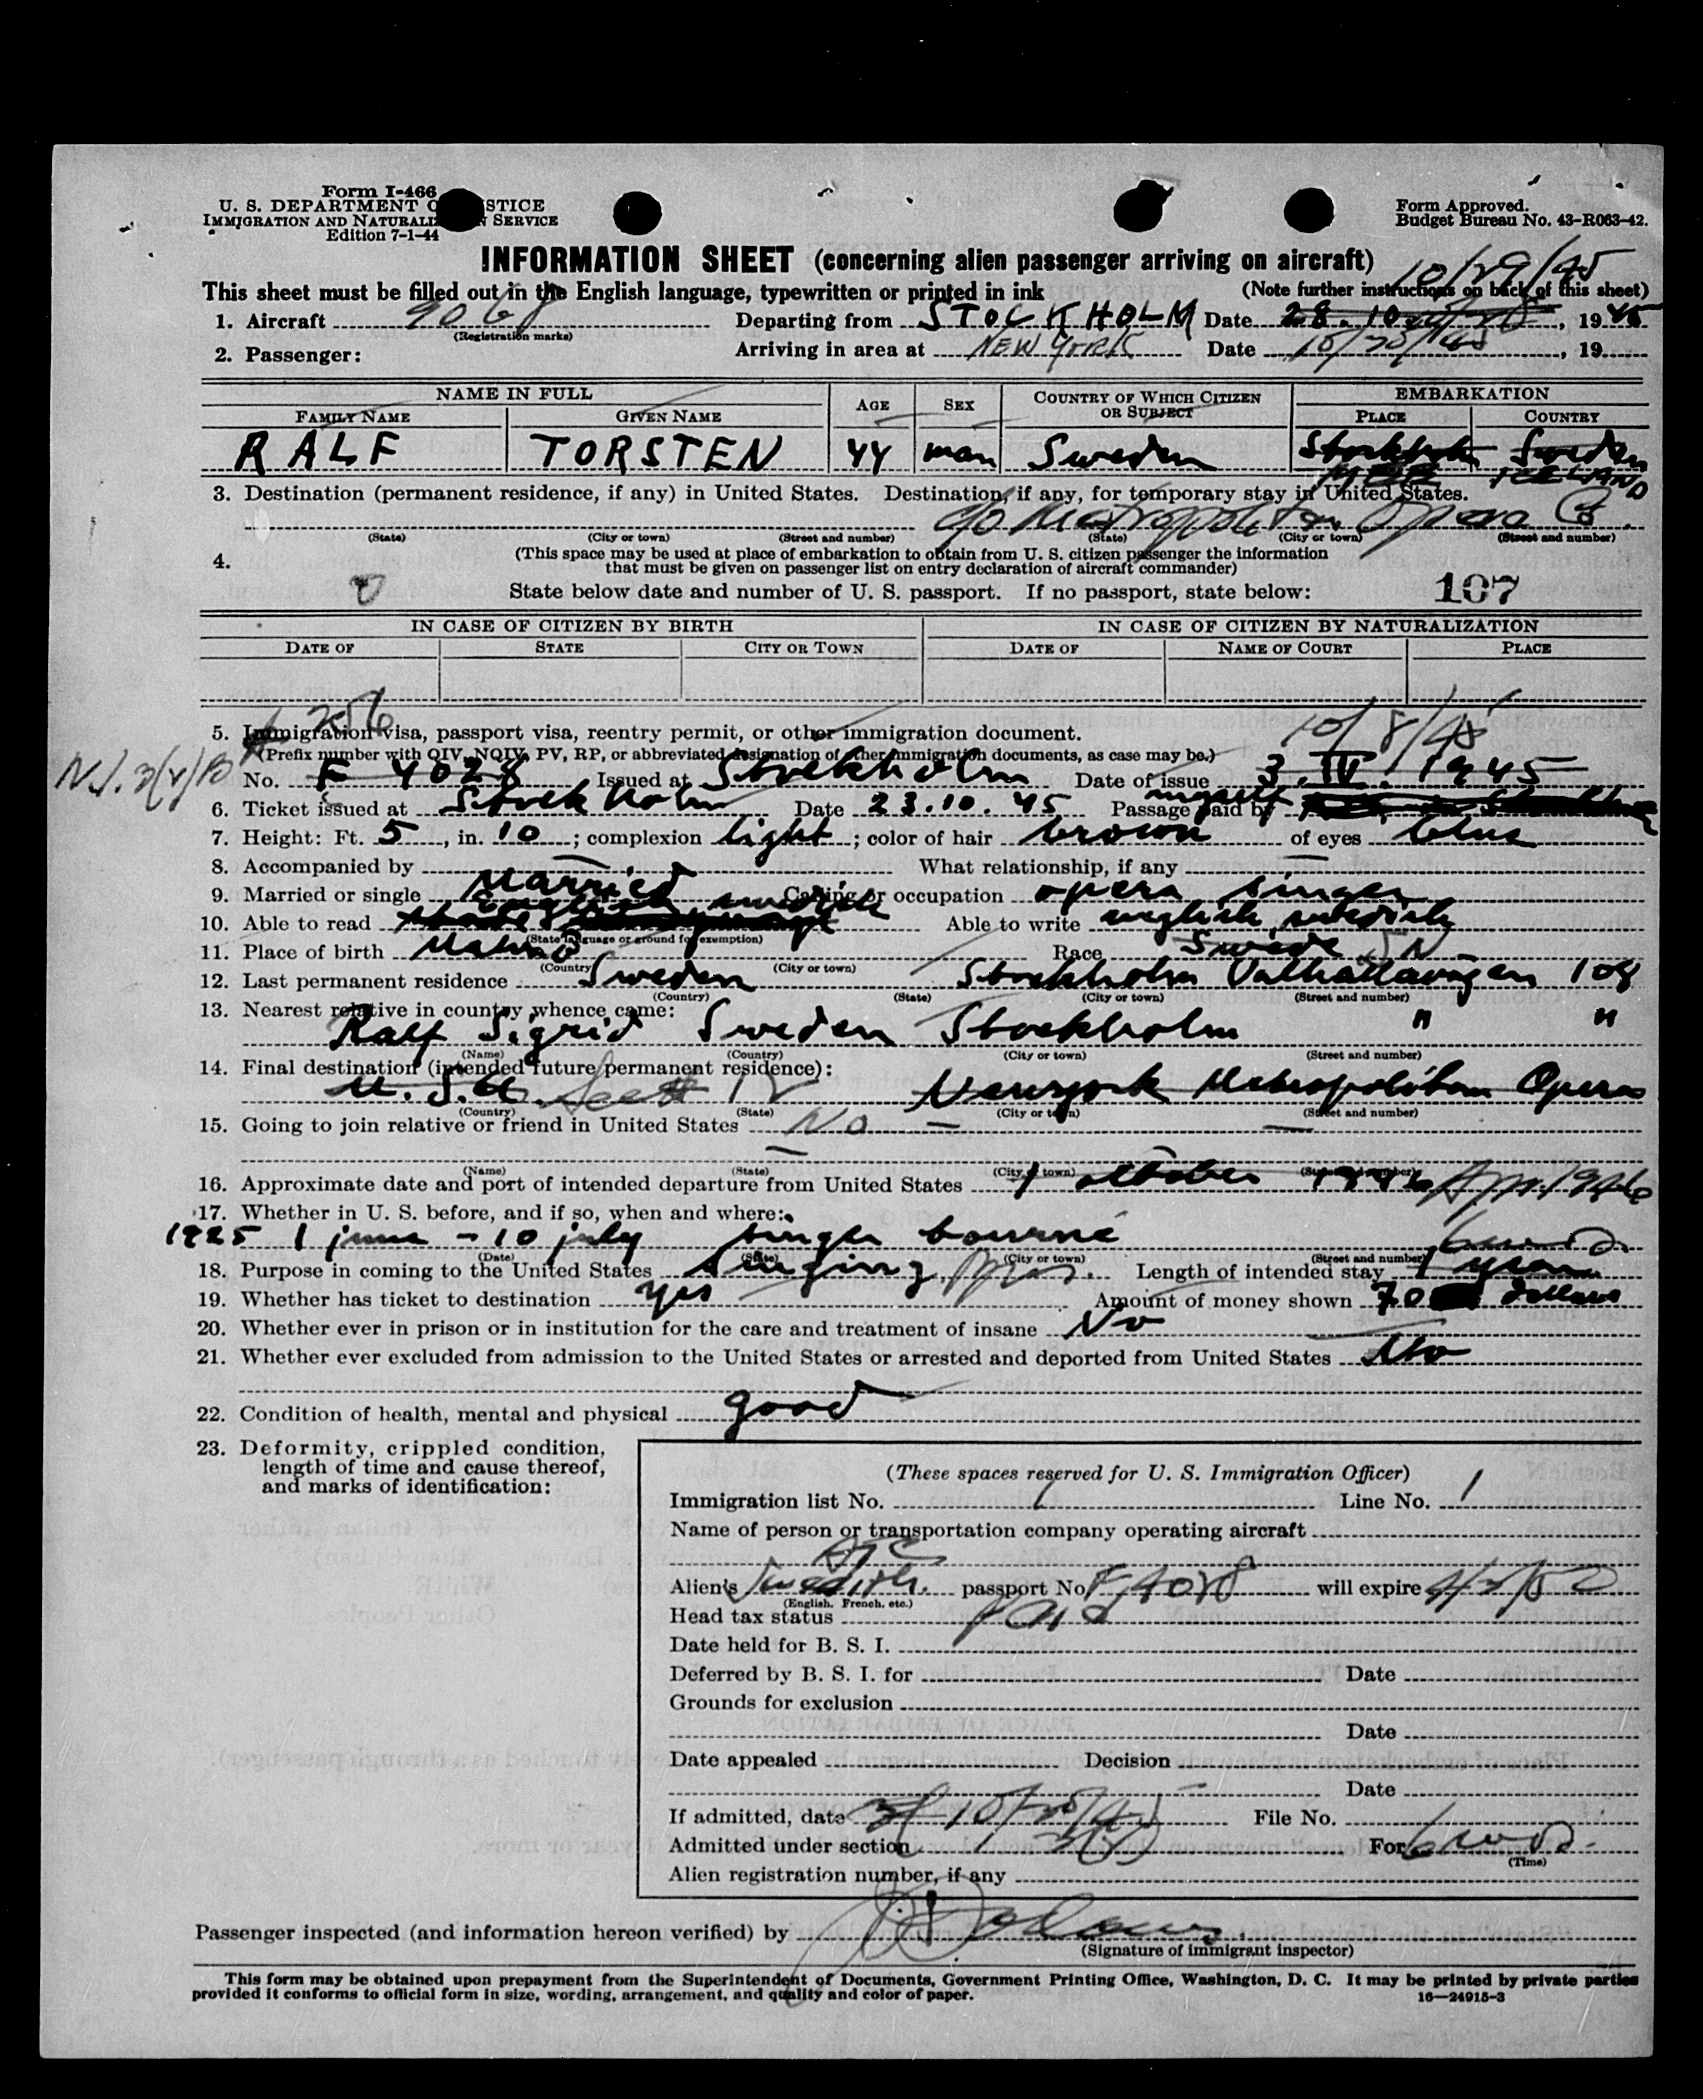 Form I-466
U. S. DEPARTMENT O STICE
IMMIGRATION AND NATURALI N SERVICE
Edition 7-1-44
Form Approved.
Budget Bureau No. 43-R063-42.
INFORMATION SHEET (concerning alien passenger arriving on aircraft)
10/29/45
This sheet must be filled out in the English language, typewritten or printed in ink (Note further instructions on back of this sheet)
1. Aircraft 9068 Departing from STOCKHOLM Date 28.10, 1945
(Registration marks)
2. Passenger: Arriving in area at NEW YORK Date, 19
NAME IN FULL AGE SEX COUNTRY OF WHICH CITIZEN OR SUBJECT EMBARKATION
FAMILY NAME GIVEN NAME PLACE COUNTRY
RALF TORSTEN 44 man Sweden Stockholm Sweden
3. Destination (permanent residence, if any) in United States. Destination, if any, for temporary stay in United States.
c/o Metropolitan Opera Co.
(State) (City or town) (Street and number) (State) (City or town) (Street and number)
4. (This space may be used at place of embarkation to obtain from U. S. citizen passenger the information
that must be given on passenger list on entry declaration of aircraft commander)
State below date and number of U. S. passport. If no passport, state below: 107
IN CASE OF CITIZEN BY BIRTH IN CASE OF CITIZEN BY NATURALIZATION
DATE OF STATE CITY OR TOWN DATE OF NAME OF COURT PLACE
256 10/8/45
5. Immigration visa, passport visa, reentry permit, or other immigration document.
(Prefix number with QIV, NQIV, PV, RP, or abbreviated designation of other immigration documents, as case may be.)
No. F 4028 Issued at Stockholm Date of issue 3. IV. 1945
6. Ticket issued at Stockholm Date 23.10.45 Passage paid by myself
7. Height: Ft. 5, in. 10; complexion light; color of hair brown of eyes blue
8. Accompanied by — What relationship, if any —
9. Married or single Married Calling or occupation opera singer
10. Able to read english swedish Able to write english swedish
(State language or ground for exemption)
11. Place of birth Malmö Race Swede
(Country) (City or town)
12. Last permanent residence Sweden Stockholm Valhallavägen 108
(Country) (State) (City or town) (Street and number)
13. Nearest relative in country whence came:
Ralf Sigrid Sweden Stockholm " "
(Name) (Country) (City or town) (Street and number)
14. Final destination (intended future permanent residence):
U.S.A. Newyork Metropolitan Opera
(Country) (State) (City or town) (Street and number)
15. Going to join relative or friend in United States No —
(Name) (State) (City or town) (Street and number)
16. Approximate date and port of intended departure from United States 1 oktober 1946 Apr. 1946
17. Whether in U. S. before, and if so, when and where:
1925 1 june - 10 july
(Date) (State) (City or town) (Street and number)
18. Purpose in coming to the United States singing Length of intended stay 1 year
19. Whether has ticket to destination yes Amount of money shown 70 dollars
20. Whether ever in prison or in institution for the care and treatment of insane No
21. Whether ever excluded from admission to the United States or arrested and deported from United States No
22. Condition of health, mental and physical good
23. Deformity, crippled condition,
length of time and cause thereof,
and marks of identification:
(These spaces reserved for U. S. Immigration Officer)
Immigration list No. 1 Line No. 1
Name of person or transportation company operating aircraft
ATC
Alien's Swedish passport No. F 4028 will expire
(English, French, etc.)
Head tax status Paid
Date held for B. S. I.
Deferred by B. S. I. for Date
Grounds for exclusion
Date
Date appealed Decision
Date
If admitted, date File No.
Admitted under section For 6 mos.
(Time)
Alien registration number, if any
Passenger inspected (and information hereon verified) by
(Signature of immigrant inspector)
This form may be obtained upon prepayment from the Superintendent of Documents, Government Printing Office, Washington, D. C. It may be printed by private parties
provided it conforms to official form in size, wording, arrangement, and quality and color of paper. 16—24915-3